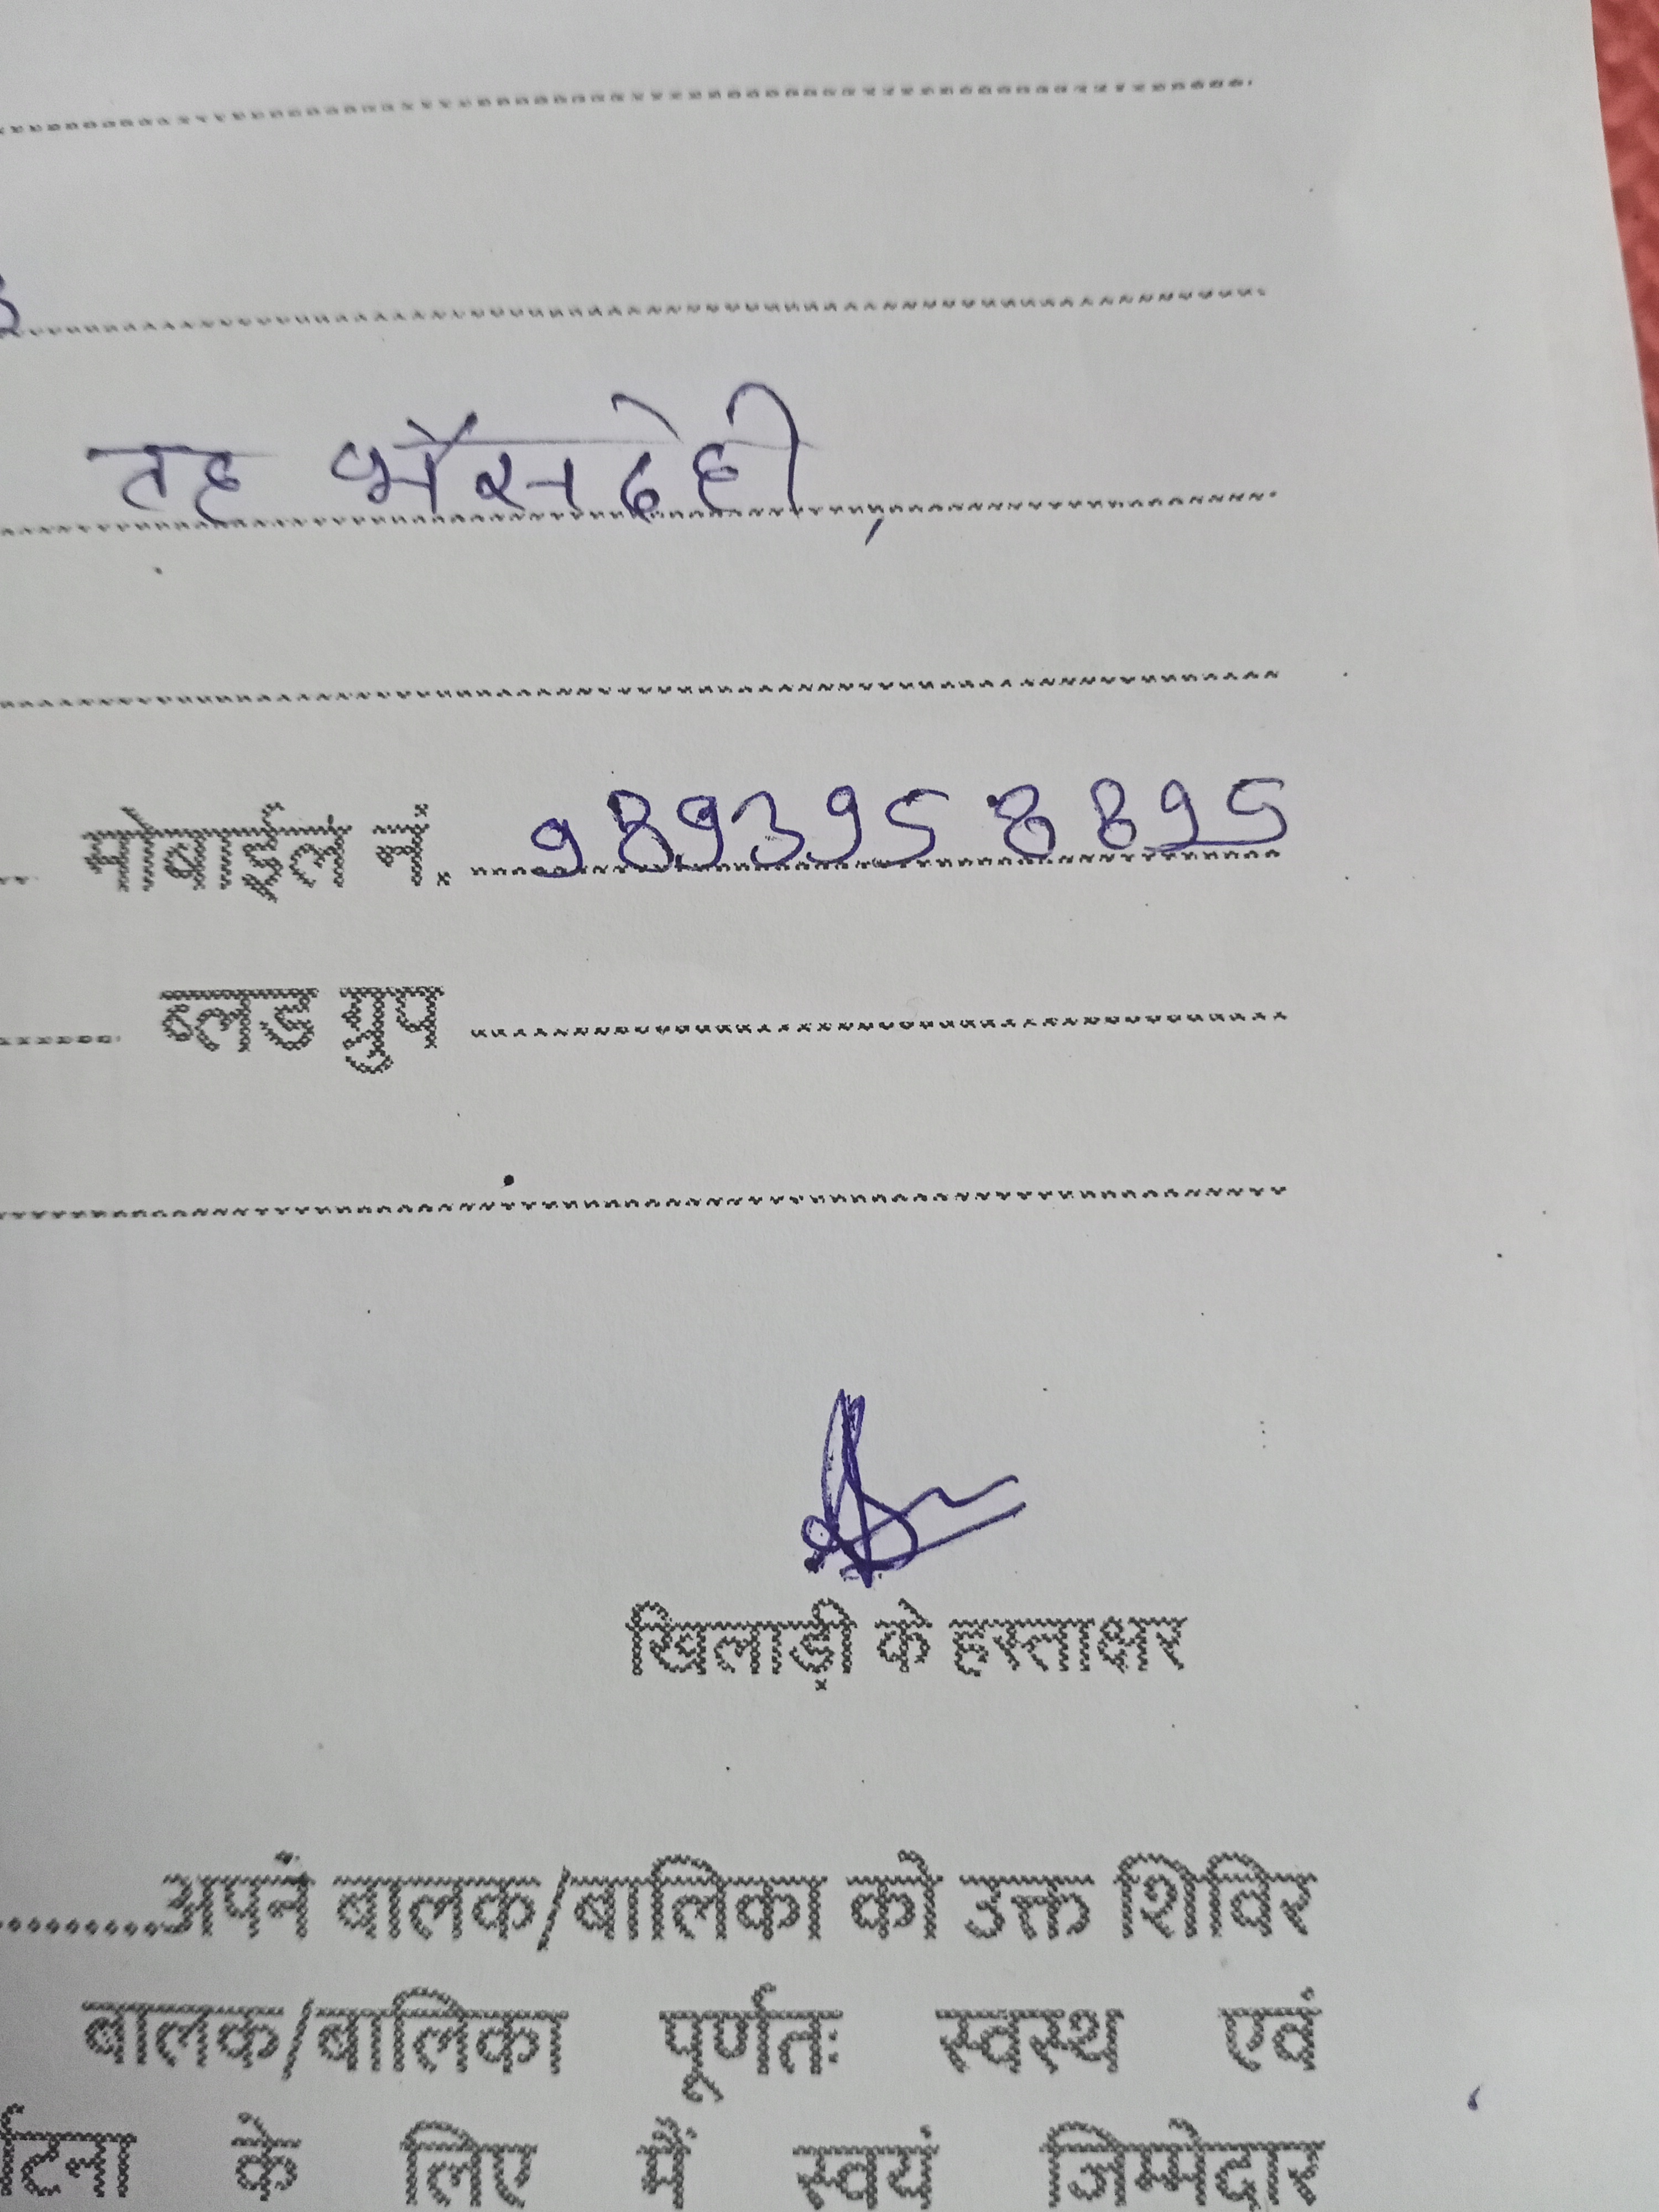 तह भैंसदेही,
मोबाईल नं. 9893958895
ब्लड ग्रुप
खिलाड़ी के हस्ताक्षर
अपने बालक/बालिका को उक्त शिविर
बालक/बालिका पूर्णतः स्वस्थ एवं
के लिए मैं स्वयं जिम्मेदार